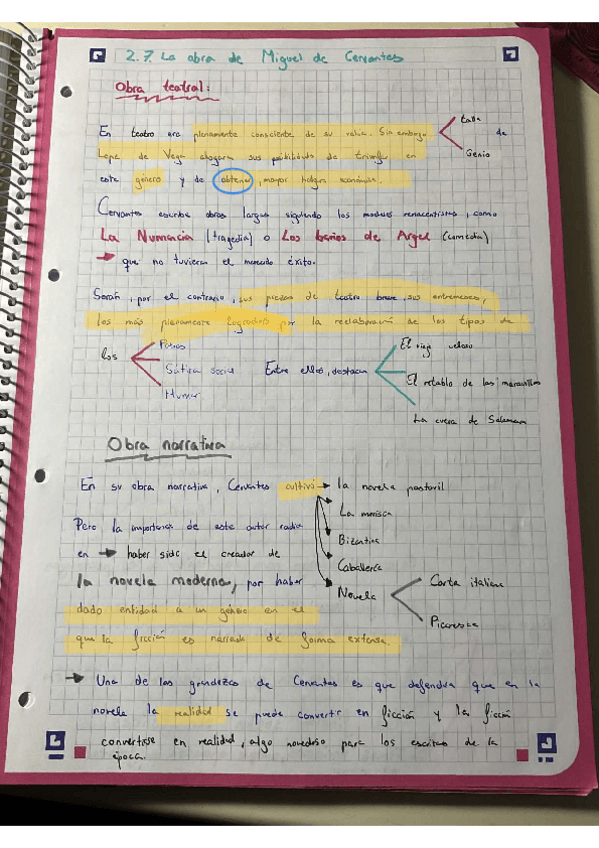 2.7. La obra de Miguel de Cervantes
Obra teatral:
En teatro era plenamente consciente de su valía. Sin embargo
talla de
Genio
Lope de Vega ahogara sus posibilidades de triunfar en
este género y de obtener mayor holgura económica.
Cervantes escribe obras largas siguiendo los modelos renacentistas, como
La Numancia (tragedia) o Los baños de Argel (comedia)
que no tuvieron el merecido éxito.
Serán, por el contrario, sus piezas de teatro breve, sus entremeses,
las más plenamente logradas por la reelaboración de los tipos de
los
Sátira social
Humor
Entre ellos, destacan
El viejo celoso
El retablo de las maravillas
La cueva de Salaman
Obra narrativa
En su obra narrativa, Cervantes cultivó
la novela pastoril
La morisca
Bizantina
Caballería
Novela
Corta italiana
Picaresca
Pero la importancia de este autor radica
en haber sido el creador de
la novela moderna, por haber
dado entidad a un género en el
que la ficción es narrada de forma extensa.
Una de las grandezas de Cervantes es que defendía que en la
novela la realidad se puede convertir en ficción y la ficción
convertirse en realidad, algo novedoso para los escritores de la
época.